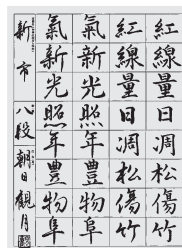 紅線量日凋松傷竹
紅線量日凋松傷竹
氣新光照年豊物阜
氣新光照年豊物阜
新市 八段 朝日観月